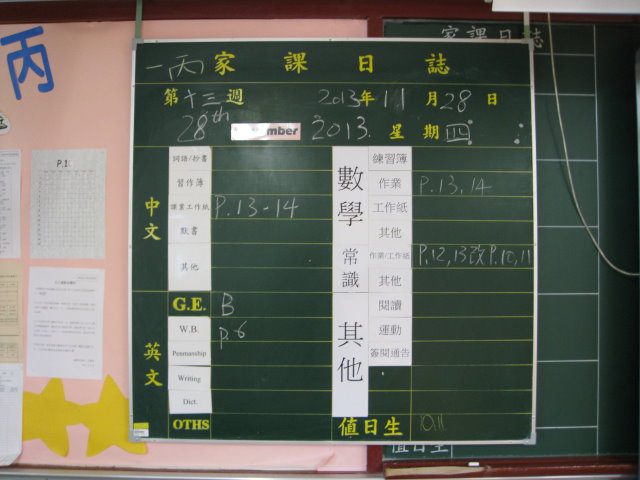 丙
家課日誌
P.10
一丙 家課日誌
第十三週 2013年11月28日
28th November 2013. 星期四
中文
詞語/抄書
習作簿
課業工作紙 P.13-14
默書
其他
英文
G.E. B
W.B. P.6
Penmanship
Writing
Dict.
OTHS
數學
練習簿
作業 P.13,14
工作紙
其他
常識
作業/工作紙 P.12,13改P.10,11
其他
其他
閱讀
運動
簽閱通告
值日生 10,11
值日生